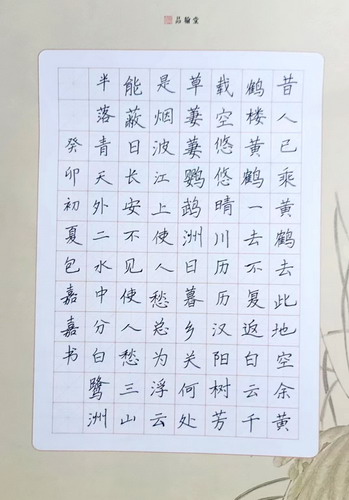 品翰堂
昔人已乘黄鹤去此地空余黄
鹤楼黄鹤一去不复返白云千
载空悠悠晴川历历汉阳树芳
草萋萋鹦鹉洲日暮乡关何处
是烟波江上使人愁总为浮云
能蔽日长安不见使人愁三山
半落青天外二水中分白鹭洲
癸卯初夏包嘉嘉书